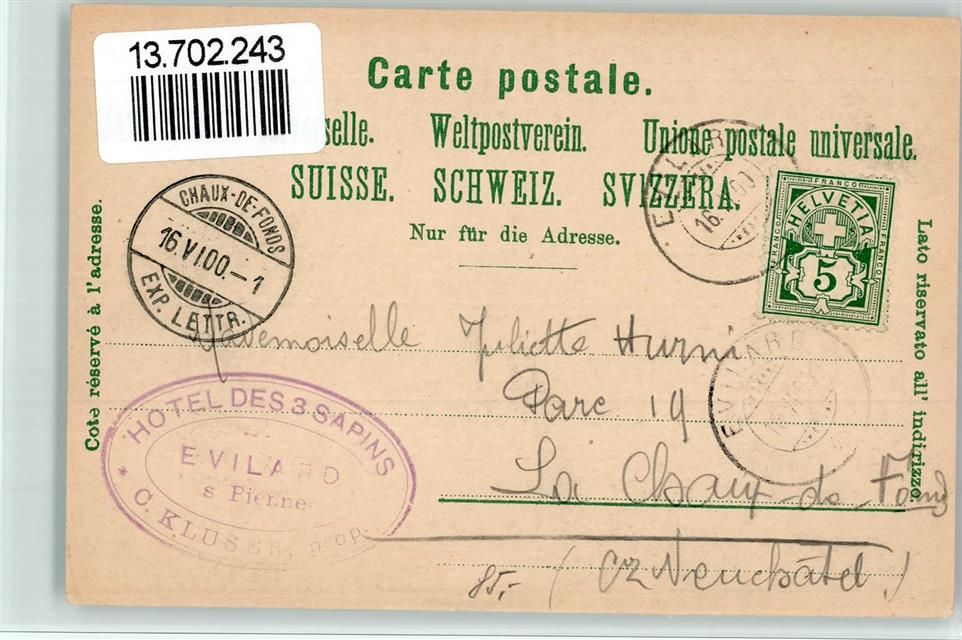 13.702.243
Carte postale.
selle. Weltpostverein. Unione postale universale.
SUISSE. SCHWEIZ. SVIZZERA.
Nur für die Adresse.
Coté réservé à l'adresse.
Lato riservato all' indirizzo.
CHAUX-DE-FONDS
16.VI.00.-1
EXP. LETTR.
FRANCO
FRANCO
FRANCO
HELVETIA
5
EVILARD
16.
00
EVILARD
Mademoiselle Juliette Hurni
Parc 19
La Chaux-de-Fonds
(Ct Neuchâtel.)
HOTEL DES 3 SAPINS
EVILARD
s Bienne
* C. KLUSER, prop.
85,-